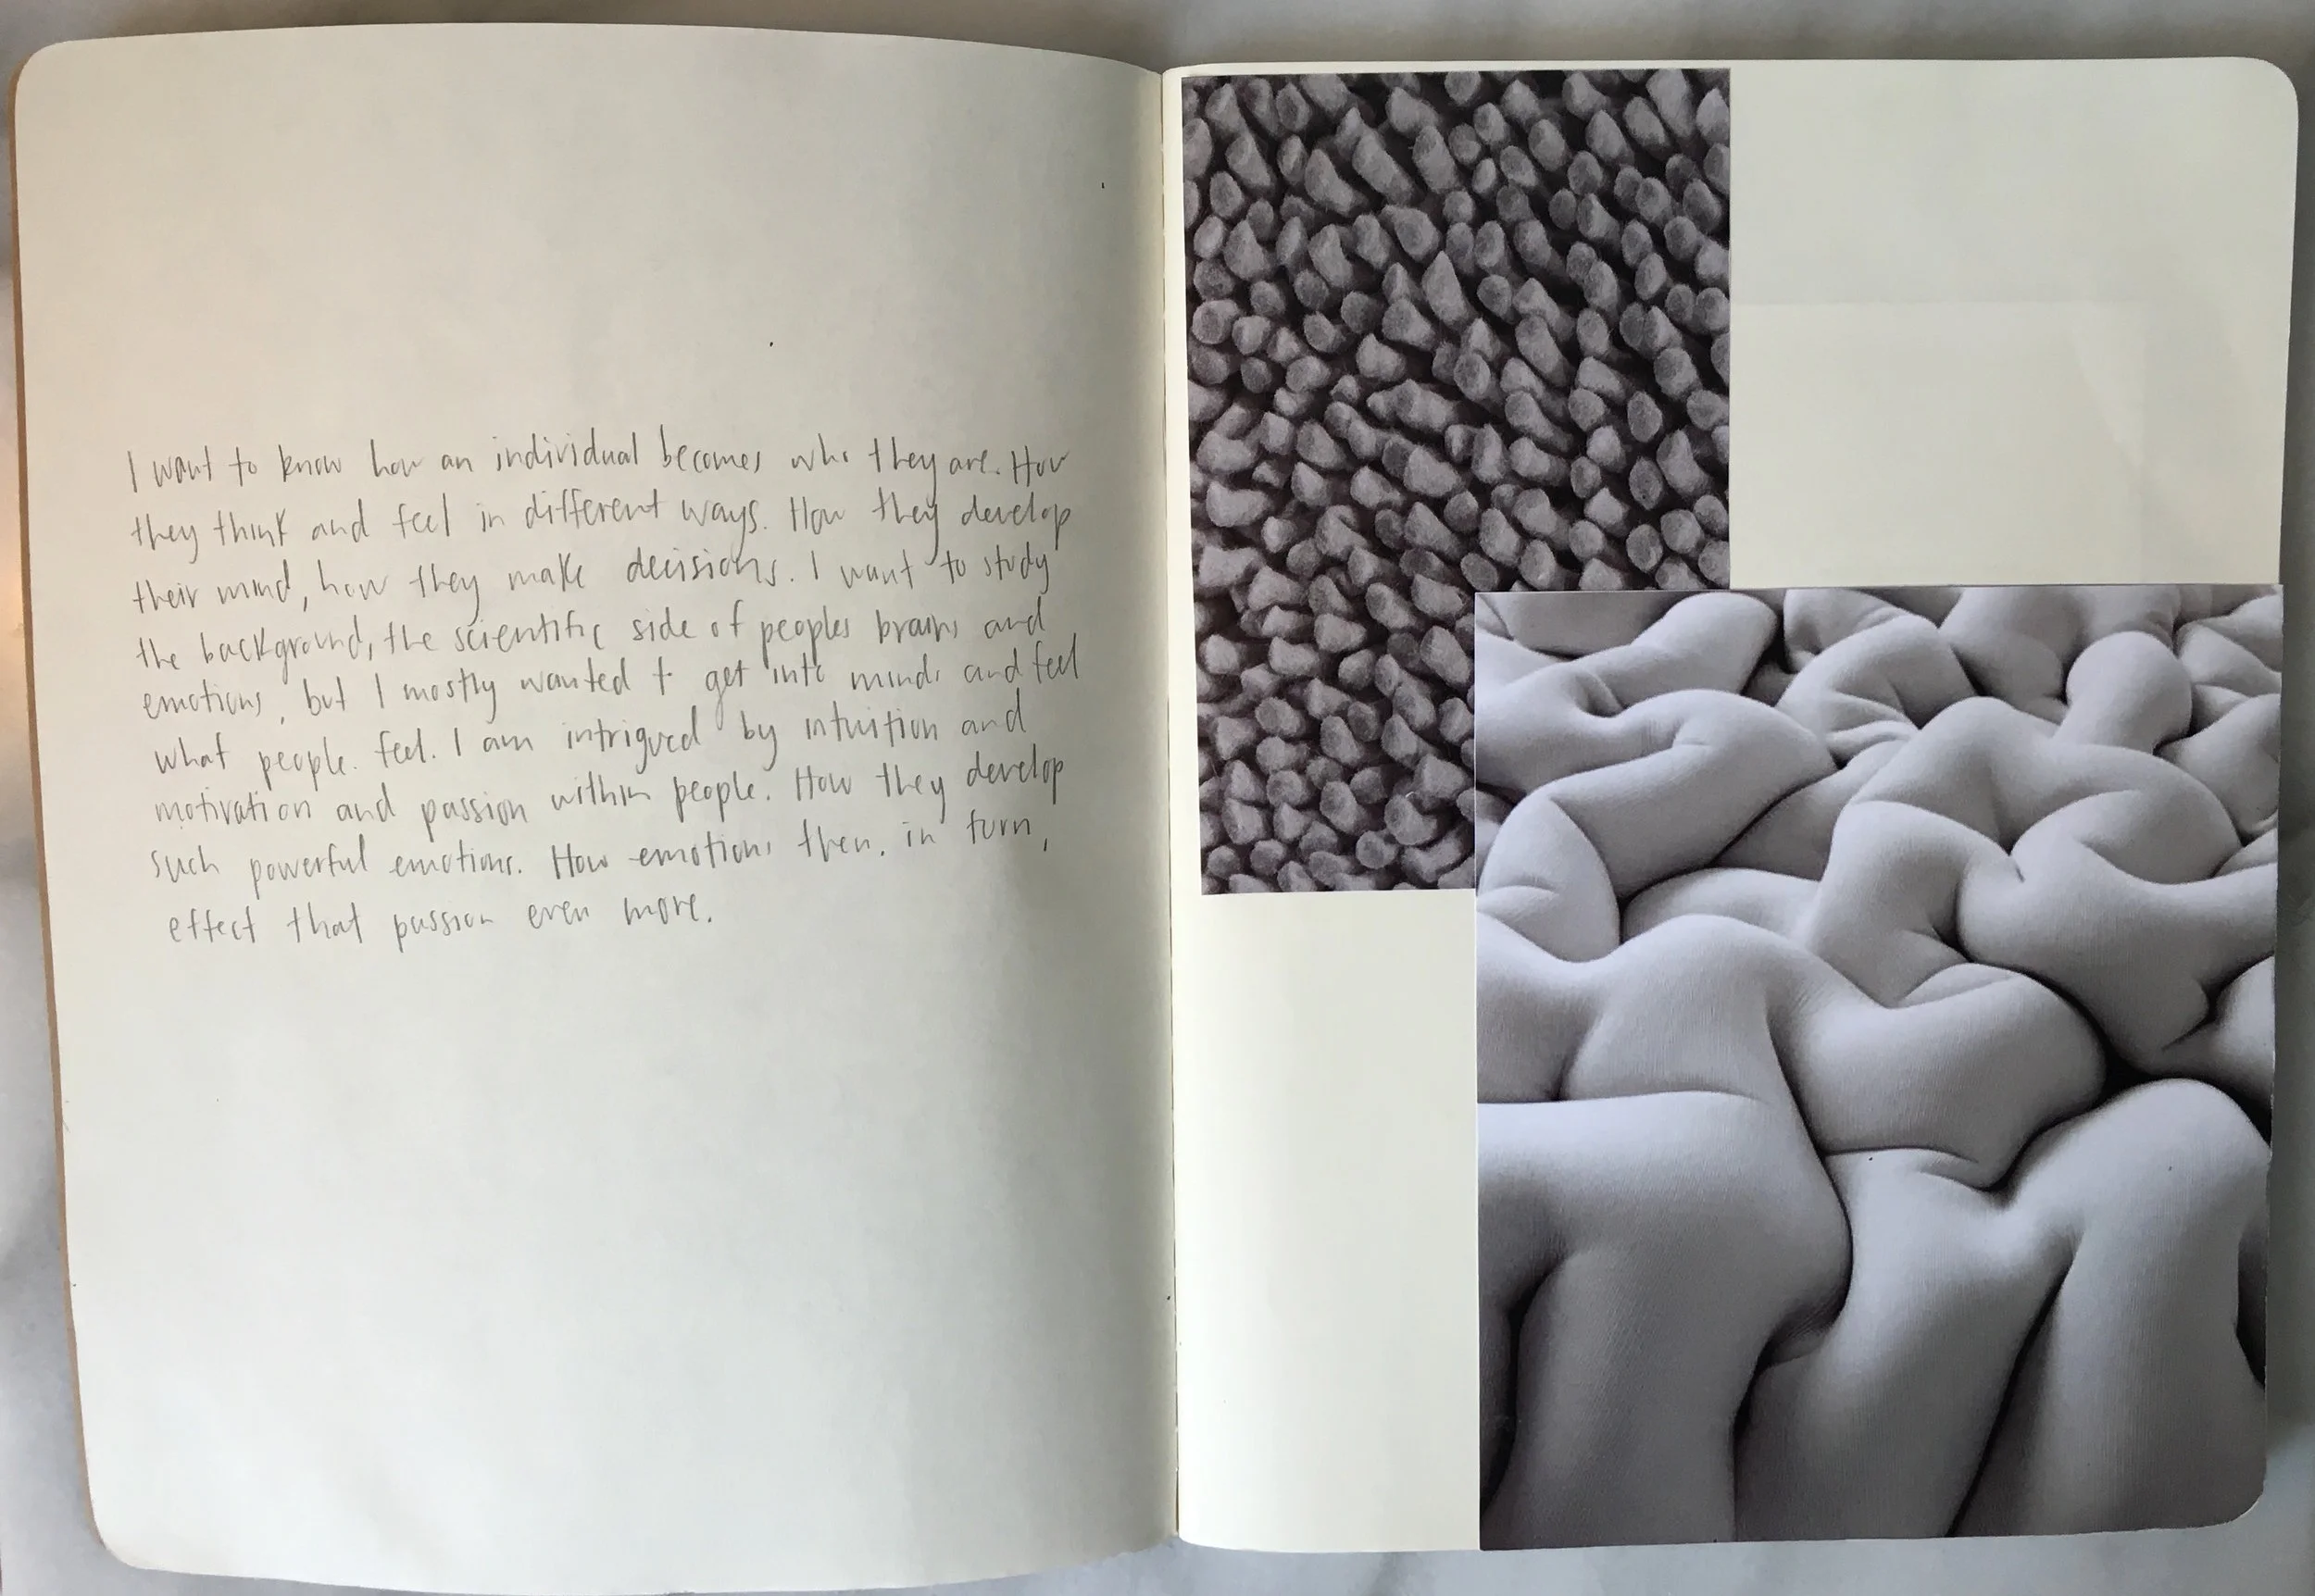 I want to know how an individual becomes who they are. How
they think and feel in different ways. How they develop
their mind, how they make decisions. I want to study
the background, the scientific side of peoples brains and
emotions, but I mostly wanted t get into minds and feel
what people. feel. I am intrigued by intuition and
motivation and passion within people. How they develop
such powerful emotions. How emotions then, in turn,
effect that passion even more.